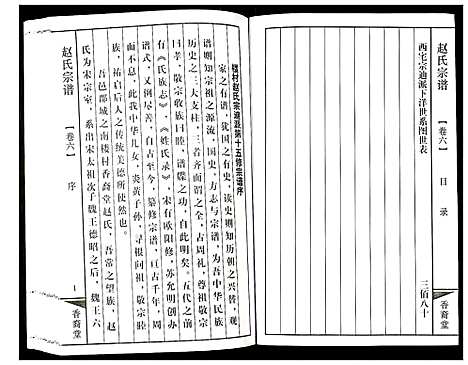 赵氏宗谱
【卷六】
目录
西宅宗迪派下洋世系图世表
三佰八十
香裔堂
楼村赵氏宗迪派第十五修宗谱序
家之有谱,犹国之有史,读史则知历朝之兴替,观
谱则知宗祖之源流,国史、方志与宗谱,为吾中华民族
历史之三大支柱,三者齐而谓之全,古周礼,尊祖敬宗
曰孝,敬宗收族曰睦,谱牒之功,自此明矣。五代之前
有《氏族志》、《姓氏录》,宋有欧阳修,苏允明创办
谱式,又例尽善,自古至今,纂修宗谱,亘古千年,周
而不息,此我中华儿女,炎黄子孙,寻根问祖,敬宗睦
族,祐启后人之传统美德所使然也。
吾邑鄙城之南楼村香裔堂赵氏,吾常之望族,赵
氏为宋宗室,系出宋太祖次子魏王德昭之后,魏王六
赵氏宗谱
【卷六】
序
1
香裔堂